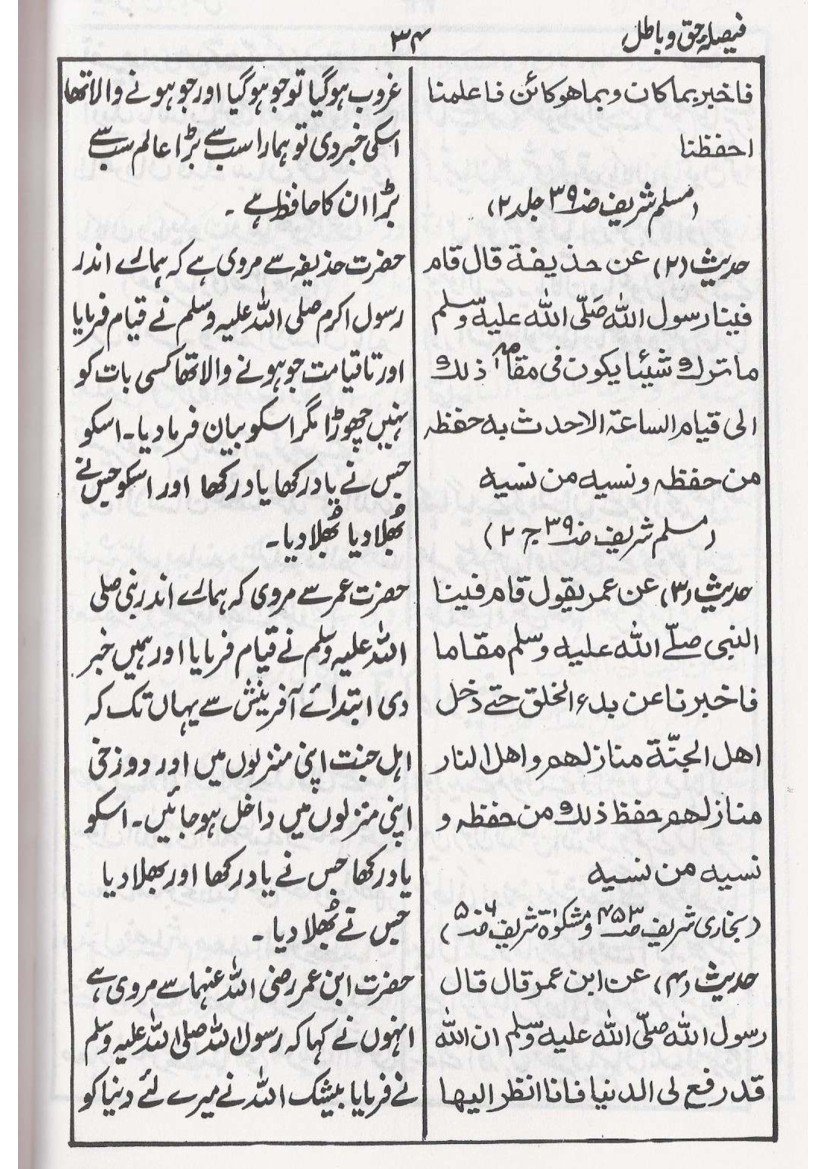 فیصلۂ حق و باطل
۳۴
فاخبر بما کان و بما ھو کائن فاعلمنا
احفظنا
(مسلم شریف صـ ۳۹۰ جلد ۲)
حدیث (۲) عن حذیفة قال قام
فینا رسول اللہ صَلَّی اللہ علیہ وسلم
ما ترك شیئا یکون فی مقامہ ذلك
الی قیام الساعة الاحدث بہ حفظہ
من حفظہ و نسیہ من نسیہ
(مسلم شریف صـ ۳۹۰ ج ۲)
حدیث (۳) عن عمر یقول قام فینا
النبی صلّے اللہ علیہ وسلم مقاما
فاخبرنا عن بدء الخلق حتے دخل
اھل الجنّة منازلھم و اھل النار
منازلھم حفظ ذلك من حفظہ و
نسیہ من نسیہ
(بخاری شریف صـ ۴۵۳ و مشکوٰۃ شریف صـ ۵۰۶)
حدیث (۴) عن ابن عمر قال قال
رسول اللہ صلّی اللہ علیہ وسلم ان اللہ
قد رفع لی الدنیا فانا انظر الیھا
غروب ہوگیا تو جو ہوگیا اور جو ہونے والا تھا
اسکی خبر دی تو ہمارا سب سے بڑا عالم سب سے
بڑا ان کا حافظ ہے ۔
حضرت حذیفہ سے مروی ہے کہ ہمالے اندر
رسول اکرم صلی اللہ علیہ وسلم نے قیام فرمایا
اور تا قیامت جو ہونے والا تھا کسی بات کو
نہیں چھوڑا مگر اسکو بیان فرما دیا۔ اسکو
جس نے یاد رکھا یاد رکھا اور اسکو جس نے
بُھلا دیا بُھلا دیا ۔
حضرت عمر سے مروی کہ ہمالے اندر نبی صلی
اللہ علیہ وسلم نے قیام فرمایا اور ہمیں خبر
دی ابتدائے آفرینش سے یہاں تک کہ
اہل جنت اپنی منزلوں میں اور دوزخی
اپنی منزلوں میں داخل ہوجائیں۔ اسکو
یاد رکھا جس نے یاد رکھا اور بھلا دیا
جس نے بُھلا دیا ۔
حضرت ابن عمر رضی اللہ عنہما سے مروی ہے
انہوں نے کہا کہ رسول اللہ صلی اللہ علیہ وسلم
نے فرمایا بیشک اللہ نے میرے لئے دنیا کو